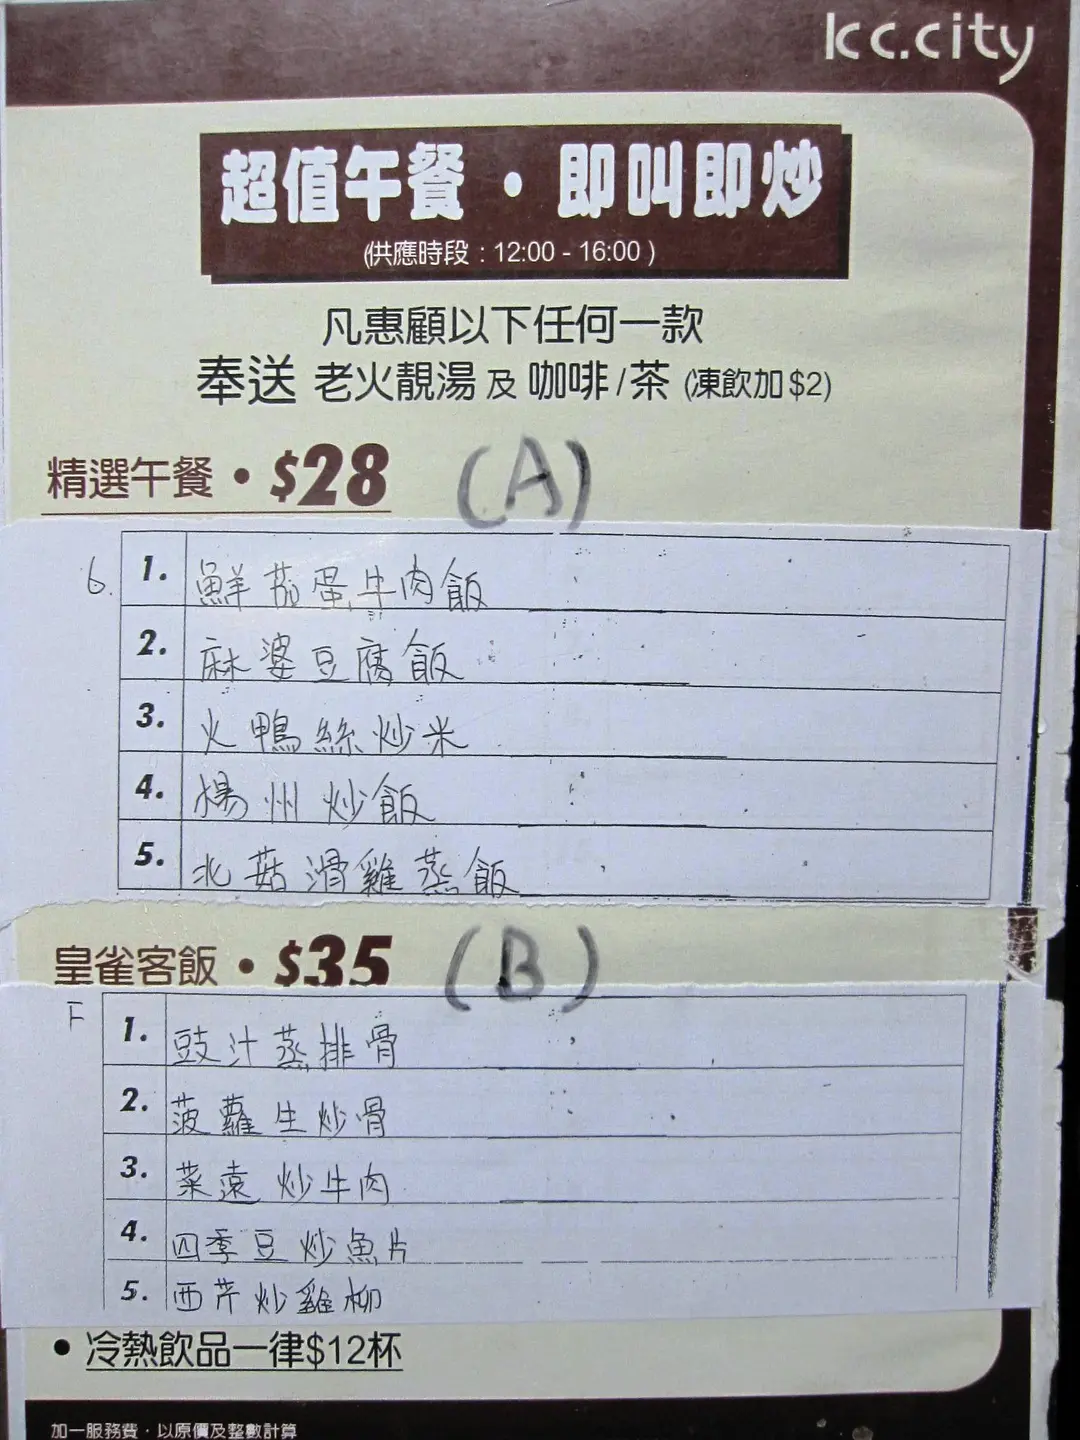 kc.city
超值午餐・即叫即炒
(供應時段 : 12:00 - 16:00 )
凡惠顧以下任何一款
奉送 老火靚湯 及 咖啡/茶 (凍飲加$2)
精選午餐・$28 (A)
6.
1. 鮮茄蛋牛肉飯
2. 麻婆豆腐飯
3. 火鴨絲炒米
4. 楊州炒飯
5. 北菇滑雞蒸飯
皇雀客飯・$35 (B)
F
1. 豉汁蒸排骨
2. 菠蘿生炒骨
3. 菜遠炒牛肉
4. 四季豆炒魚片
5. 西芹炒雞柳
• 冷熱飲品一律$12杯
加一服務費・以原價及整數計算